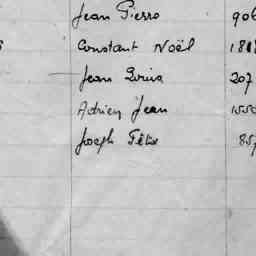 Jean Pierro 906
Constant Noël
Jean 207
Adrien Jean 1550
Joseph Félix 85